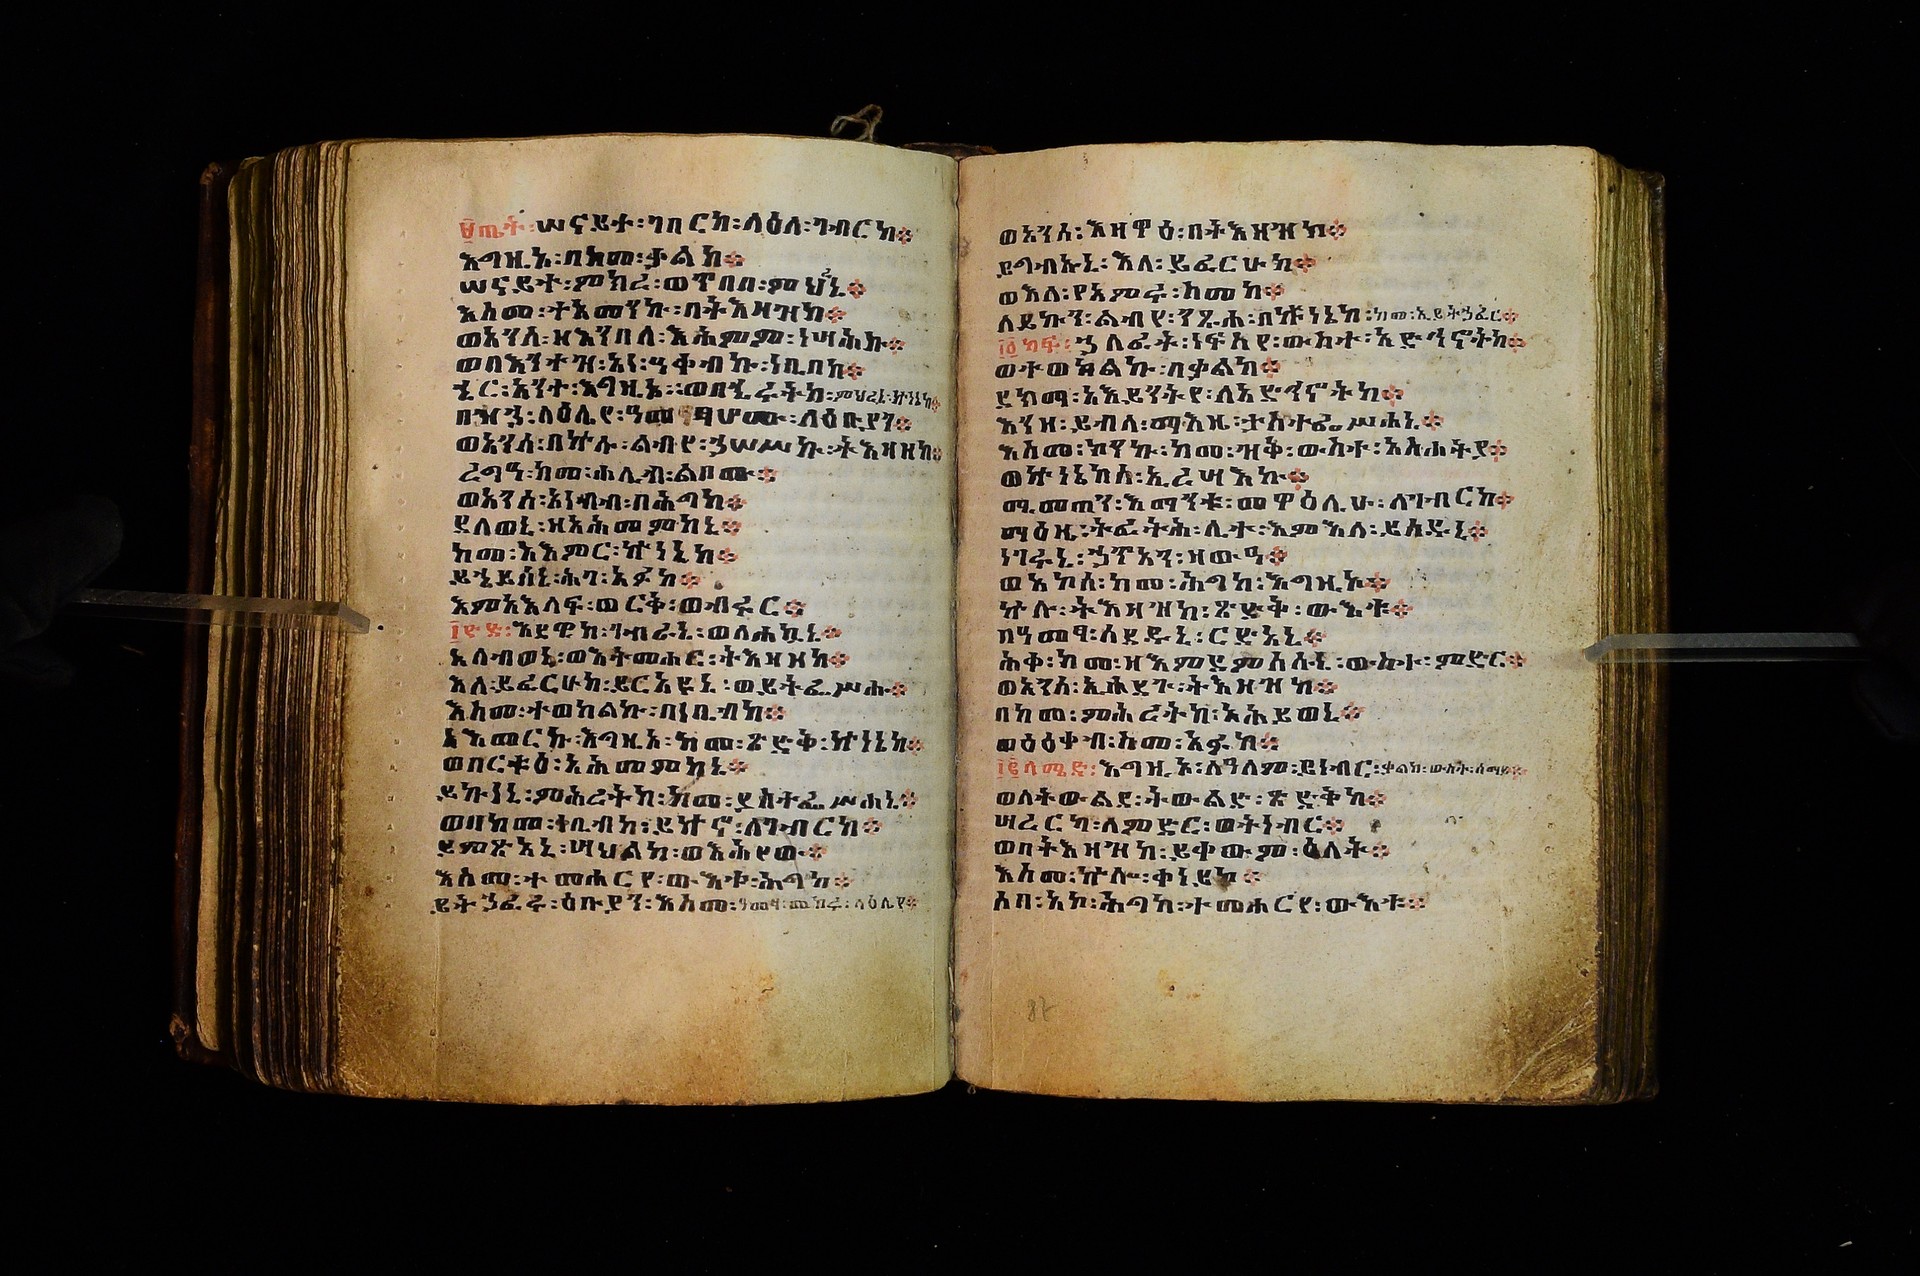 ፱ጤት፡ሠናይተ፡ገበርከ፡ላዕለ፡ገብርከ፨
እግዚኦ፡በከመ፡ቃልከ፨
ሠናይተ፡ምክረ፡ወጥበበ፡ምህረኒ፨
እስመ፡ተአመንኩ፡በትእዛዝከ፨
ወአንሰ፡ዘእንበለ፡እሕምም፡ነሣሕኩ፨
ወበእንተዝ፡አነ፡ዓቀብኩ፡ነቢበከ፨
ኄር፡አንተ፡እግዚኦ፡ወበኂሩትከ፡ምህረኒ፡ኵነኔከ፨
በዝኃ፡ላዕሌየ፡ዓመፃሆሙ፡ለዕቡያን፨
ወአንሰ፡በኵሉ፡ልብየ፡ኃሠሥኩ፡ትእዛዘከ፨
ረግዓ፡ከመ፡ሐሊብ፡ልቦሙ፨
ወአንሰ፡አነብብ፡በሕግከ፨
ደለወኒ፡ዘአሕመምከኒ፨
ከመ፡አእምር፡ኵነኔከ፨
ይኄይሰኒ፡ሕገ፡አፉከ፨
እምአእላፍ፡ወርቅ፡ወብሩር፨
፲ዮድ፡እደዊከ፡ገብራኒ፡ወለሐኳኒ፨
አለብወኒ፡ወእትመሐር፡ትእዛዘከ፨
እለ፡ይፈርሁከ፡ይርአዩኒ፡ወይትፌሥሑ፨
እስመ፡ተወከልኩ፡በነቢብከ፨
አእመርኩ፡እግዚኦ፡ከመ፡ጽድቅ፡ኵነኔከ፨
ወበርቱዕ፡አሕመምከኒ፨
ይኩነኒ፡ምሕረትከ፡ከመ፡ያስተፌሥሐኒ፨
ወበከመ፡ነቢብከ፡ይኵኖ፡ለገብርከ፨
ይምጽአኒ፡ሣህልከ፡ወአሕየው፨
እስመ፡ተመሐርየ፡ውእቱ፡ሕግከ፨
ይትኃፈሩ፡ዕቡያን፡እስመ፡ዓመፃ፡መከሩ፡ላዕሌየ፨
ወአንሰ፡እዛዋዕ፡በትእዛዝከ፨
ይግብኡኒ፡እለ፡ይፈርሁከ፨
ወእለ፡የአምሩ፡ስመከ፨
ለይኩን፡ልብየ፡ንጹሐ፡በኵነኔከ፡ከመ፡ኢይትኃፈር፨
፲፩ካፍ፡ኃለፈት፡ነፍስየ፡ውስተ፡አድኅኖትከ፨
ወተወከልኩ፡በቃልከ፨
ደክማ፡አእይንትየ፡ለአድኅኖትከ፨
እንዘ፡ይብላ፡ማእዜ፡ታስተፌሥሐኒ፨
እስመ፡ኮንኩ፡ከመ፡ዝቅ፡ውስተ፡አስሐትያ፨
ወኵነኔከሰ፡ኢረሣእኩ፨
ሚመጠን፡እማንቱ፡መዋዕሊሁ፡ለገብርከ፨
ማዕዜ፡ትፈትሕ፡ሊተ፡እምእለ፡ይሰዱኒ፨
ነገሩኒ፡ኃጥአን፡ዘውዓ፨
ወአኮሰ፡ከመ፡ሕግከ፡እግዚኦ፨
ኵሉ፡ትእዛዝከ፡ጽድቅ፡ውእቱ፨
በዓመፃ፡ሰደዱኒ፡ርድአኒ፨
ሕቀ፡ከመ፡ዘእምደምሰሱኒ፡ውስተ፡ምድር፨
ወአንሰ፡ኢኀደጉ፡ትእዛዝከ፨
በከመ፡ምሕረትከ፡አሕይወኒ፨
ወዕዕቀብ፡ስመ፡አፉከ፨
፲፪ላሜድ፡እግዚኦ፡ለዓለም፡ይነብር፡ቃልከ፡ውስተ፡ሰማይ፨
ወለትውልደ፡ትውልድ፡ጽድቅከ፨
ሣረርካ፡ለምድር፡ወትነብር፨
ወበትእዛዝከ፡ይቀውም፡ዕለት፨
እስመ፡ኵሎ፡ቀነይከ፨
ሶበ፡አኮ፡ሕግከ፡ተመሐርየ፡ውእቱ፨
87